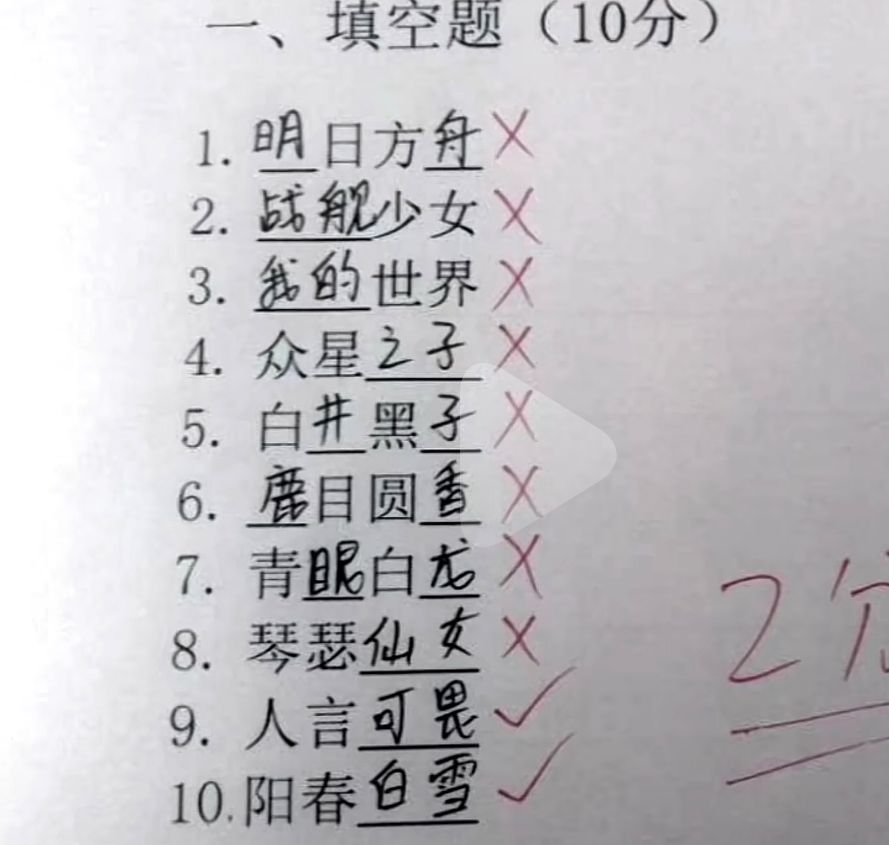 一、填空题（10分）
1. 明日方舟
2. 战舰少女
3. 我的世界
4. 众星之子
5. 白井黑子
6. 鹿目圆香
7. 青眼白龙
8. 琴瑟仙女
9. 人言可畏
10.阳春白雪
2分